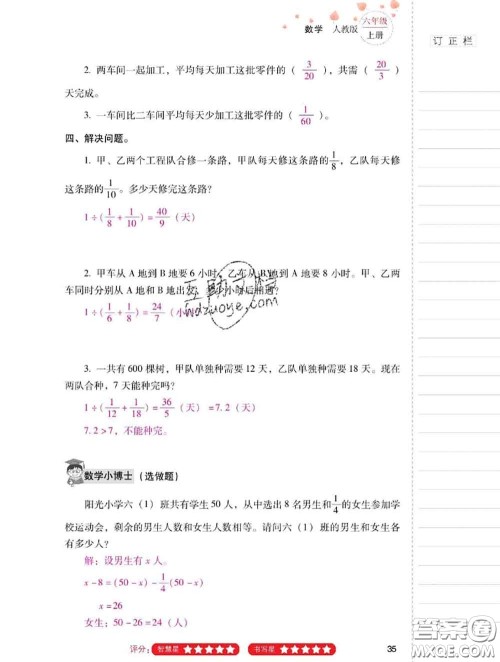 数学 人教版 六年级 上册
订正栏
2. 两车间一起加工，平均每天加工这批零件的（ 3/20 ），共需（ 20/3 ）
天完成。
3. 一车间比二车间平均每天少加工这批零件的（ 1/60 ）。
四、解决问题。
1. 甲、乙两个工程队合修一条路，甲队每天修这条路的1/8，乙队每天修
这条路的1/10。多少天修完这条路？
1÷(1/8+1/10)=40/9（天）
2. 甲车从 A 地到 B 地要 6 小时，乙车从 B 地到 A 地要 8 小时。甲、乙两
车同时分别从 A 地和 B 地出发，多少小时后相遇？
1÷(1/6+1/8)=24/7（小
3. 一共有 600 棵树，甲队单独种需要 12 天，乙队单独种需要 18 天。现在
两队合种，7 天能种完吗？
1÷(1/12+1/18)=36/5（天）=7.2（天）
7.2>7，不能种完。
数学小博士（选做题）
阳光小学六（1）班共有学生 50 人，从中选出 8 名男生和1/4的女生参加学
校运动会，剩余的男生人数和女生人数相等。请问六（1）班的男生和女生各
有多少人？
解：设男生有 x 人。
x－8=(50－x)－1/4(50－x)
x=26
女生：50－26=24（人）
评分： 智慧星 ★★★★★ 书写星 ★★★★★
35
wdzuoye.com
答案圈
MXQE.COM